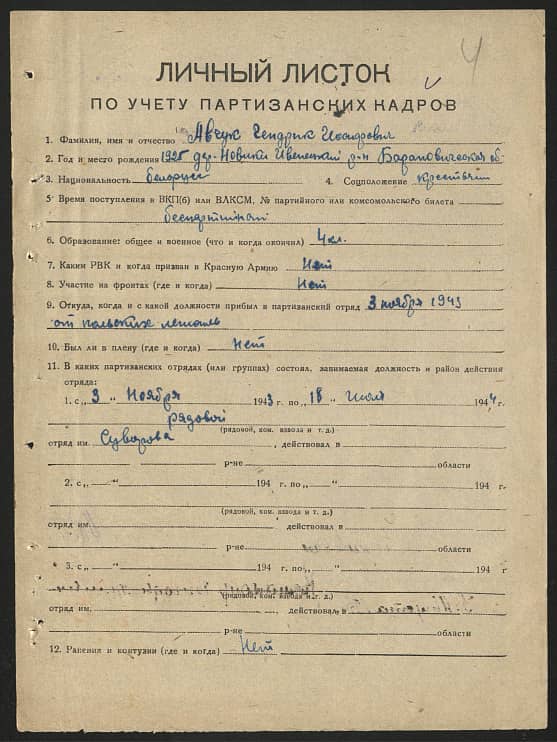 4
ЛИЧНЫЙ ЛИСТОК
ПО УЧЕТУ ПАРТИЗАНСКИХ КАДРОВ
1. Фамилия, имя и отчество Авсюк Гендрик Иосифович
2. Год и место рождения 1925 дер. Новики Ивенецкий р-н Барановическая об
3. Национальность белорус 4. Соцположение крестьян
5. Время поступления в ВКП(б) или ВЛКСМ, № партийного или комсомольского билета
беспартийный
6. Образование: общее и военное (что и когда окончил) 4 кл.
7. Каким РВК и когда призван в Красную Армию Нет
8. Участие на фронтах (где и когда) Нет
9. Откуда, когда и с какой должности прибыл в партизанский отряд 3 ноября 1943
от польских
10. Был ли в плену (где и когда) Нет
11. В каких партизанских отрядах (или группах) состоял, занимаемая должность и район действия
отряда:
1. с „ 3 " Ноября 1943 г. по „ 18 " Июля 1944 г.
рядовой
(рядовой, ком. взвода и т. д.)
отряд им. Суворова, действовал в
р-не области
2. с „ " 194 г. по „ " 194 г
(рядовой, ком. взвода и т. д.)
отряд им. действовал в
р-не области
3. с „ " 194 г. по „ " 194 г
(рядовой, ком. взвода и т. д.)
отряд им. действовал в
р-не области
12. Ранения и контузии (где и когда) Нет